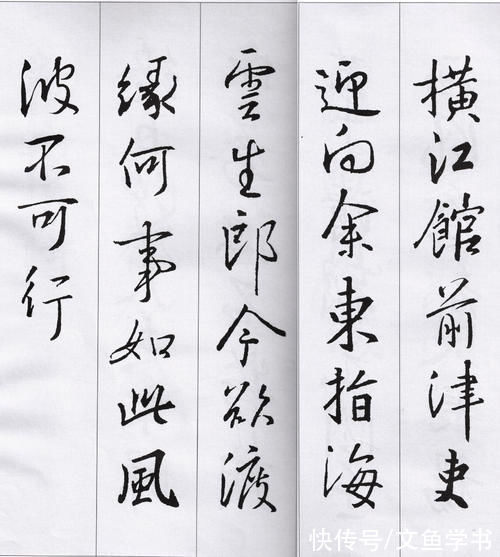 橫江館前津吏
迎向余東指海
雲生郎今欲渡
緣何事如此風
波不可行
快传号/文鱼学书